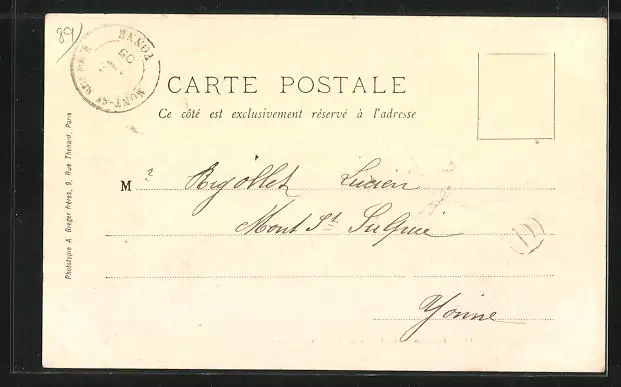 89
MONT-ST SULPICE YONNE
05
CARTE POSTALE
Ce côté est exclusivement réservé à l'adresse
M r Rigollet Lucien
Mont St Sulpice
D
Yonne
Phototypie A. Breger frères, 9, Rue Thenard, Paris